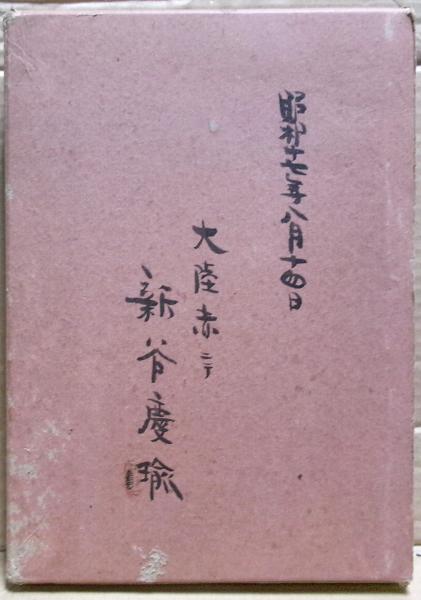 昭和十七年八月十四日
大陸赤ニテ
新谷慶瑜